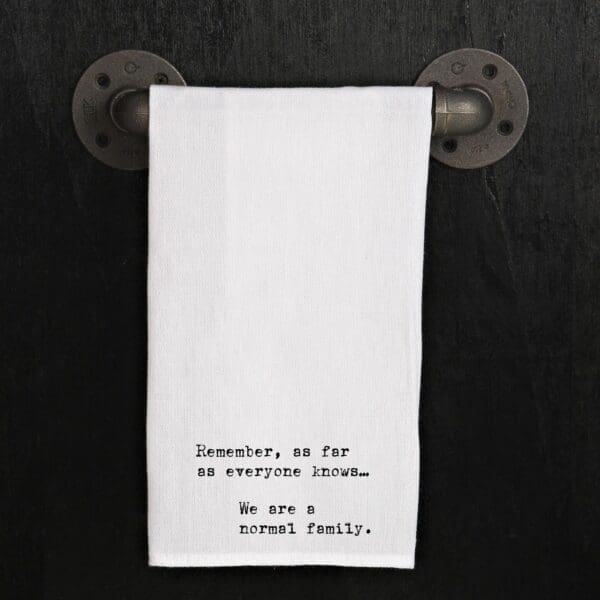 Remember, as far
as everyone knows…
We are a
normal family.